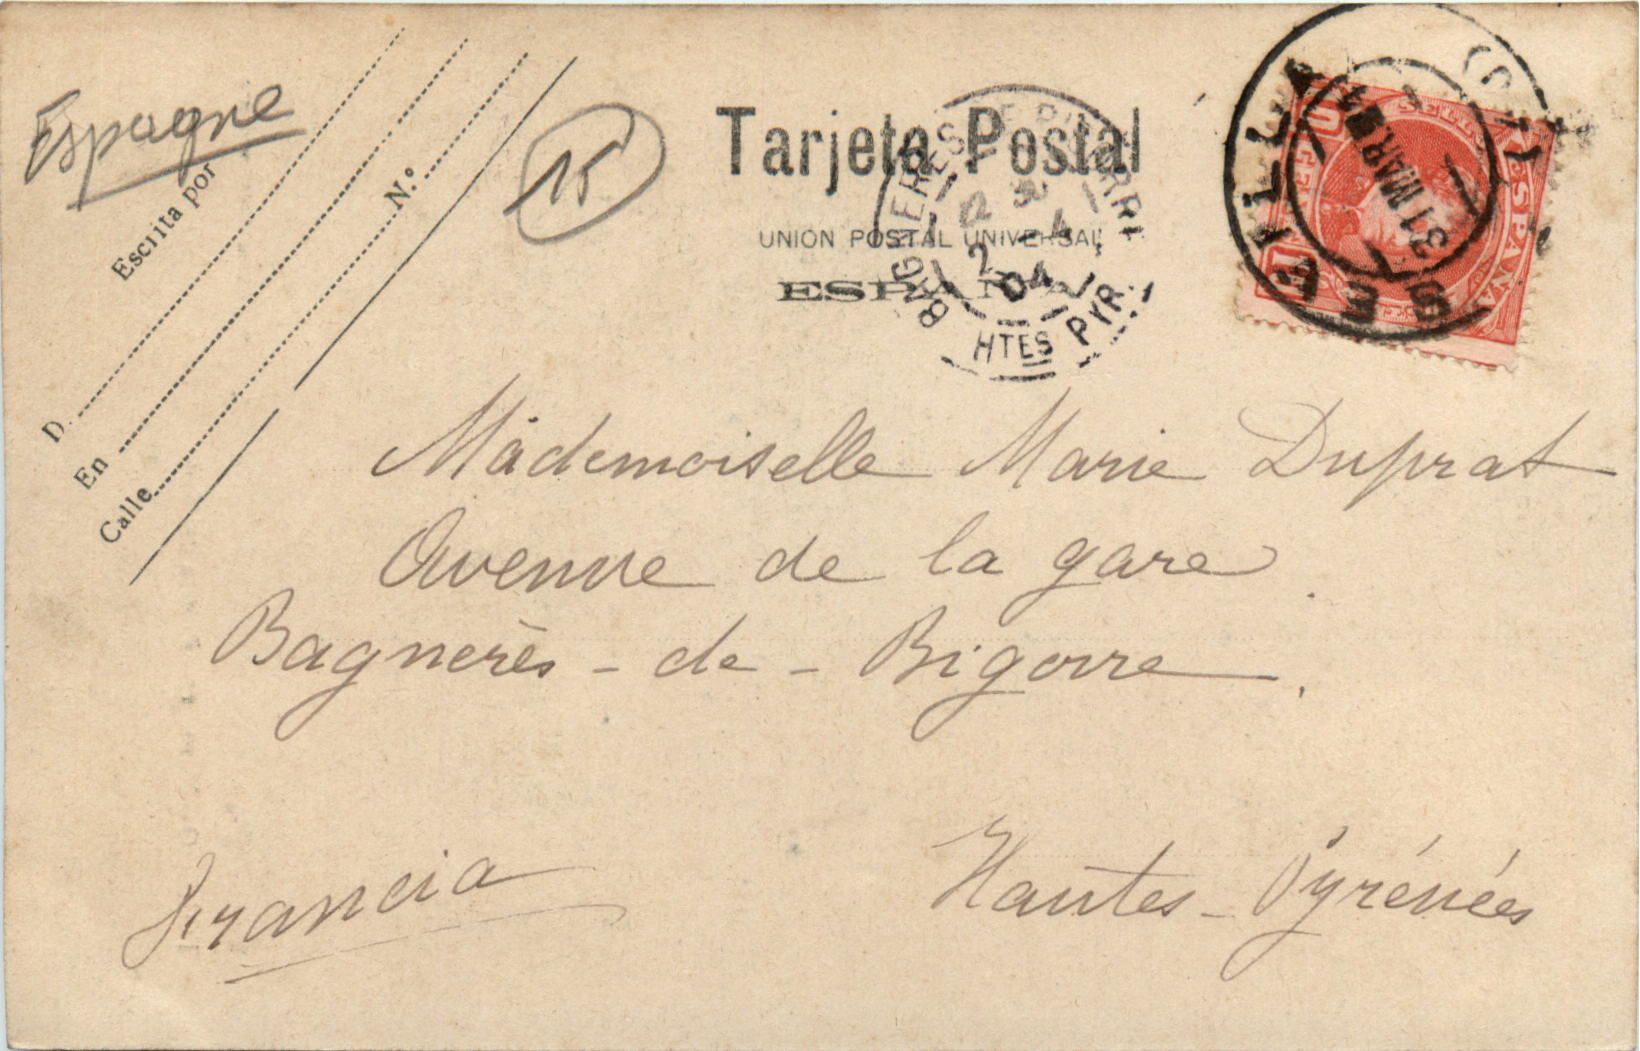 Espagne
Escrita por
D.
En
Calle
N.º
15
Tarjeta Postal
UNION POSTAL UNIVERSAL
ESPAÑA
BAGNERES DE BIGORRE
2 -4
04
HTES PYR.
SEVILLA
31 MAR 04
ESPAÑA
10
Mademoiselle Marie Duprat
Avenue de la gare
Bagnerès-de-Bigorre
Hautes-Pyrénées
Francia